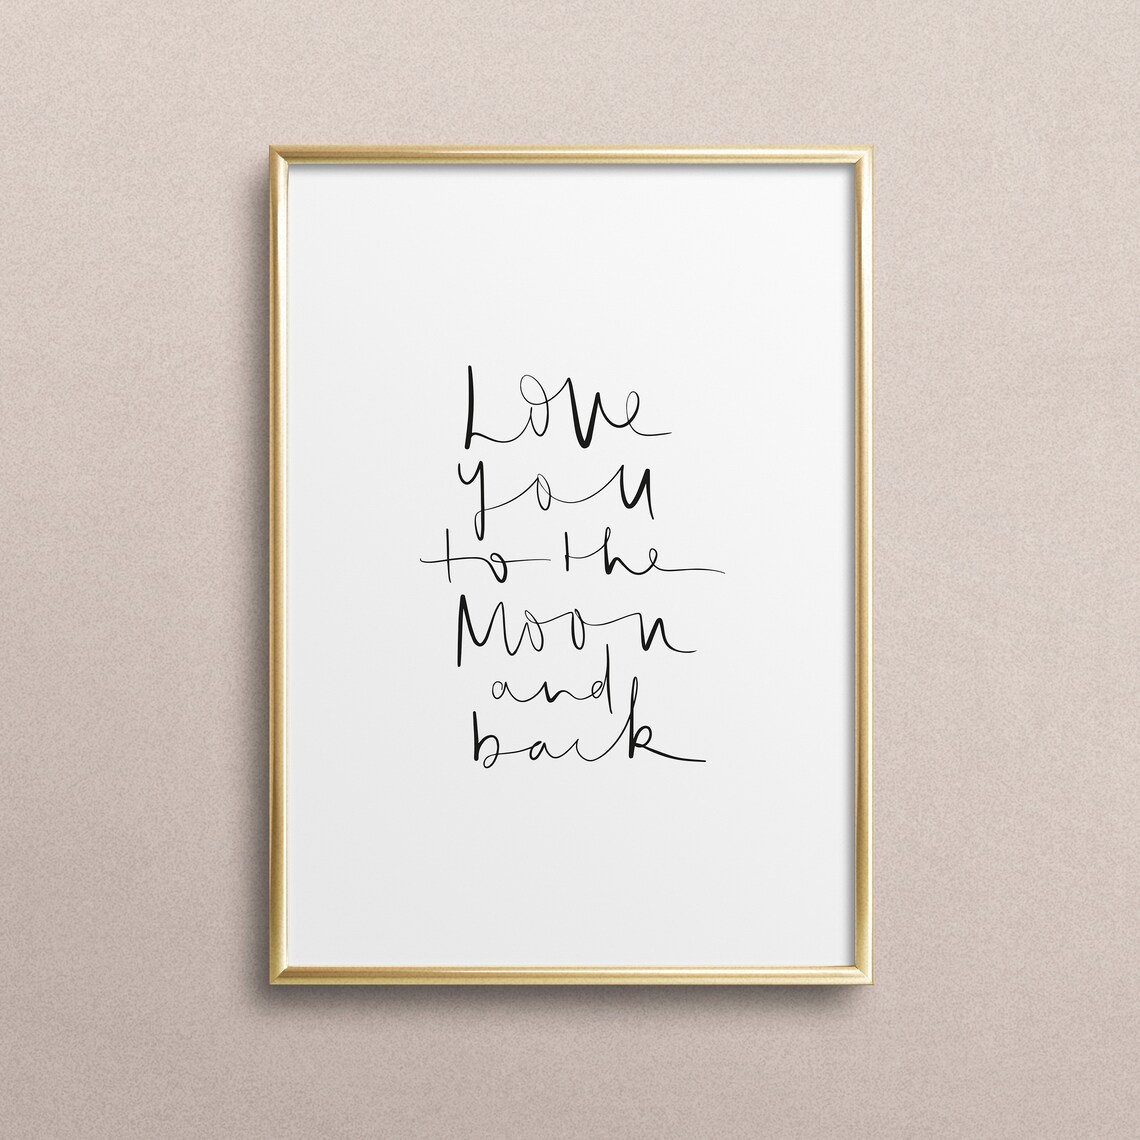 Love
you
to the
Moon
and
back